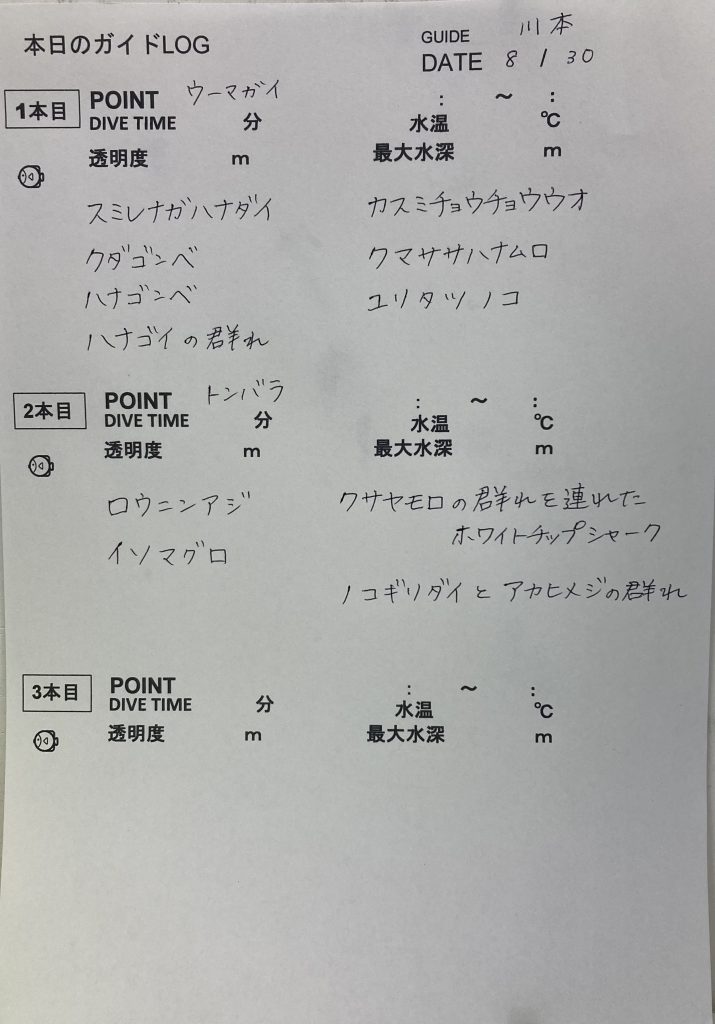 本日のガイドLOG
GUIDE 川本
DATE 8 / 30
1本目 POINT ウーマガイ : ~ :
DIVE TIME 分 水温 ℃
透明度 m 最大水深 m
スミレナガハナダイ カスミチョウチョウウオ
クダゴンベ クマササハナムロ
ハナゴンベ ユリタツノコ
ハナゴイの群れ
2本目 POINT トンバラ : ~ :
DIVE TIME 分 水温 ℃
透明度 m 最大水深 m
ロウニンアジ クサヤモロの群れを連れた
ホワイトチップシャーク
イソマグロ
ノコギリダイと アカヒメジの群れ
3本目 POINT : ~ :
DIVE TIME 分 水温 ℃
透明度 m 最大水深 m